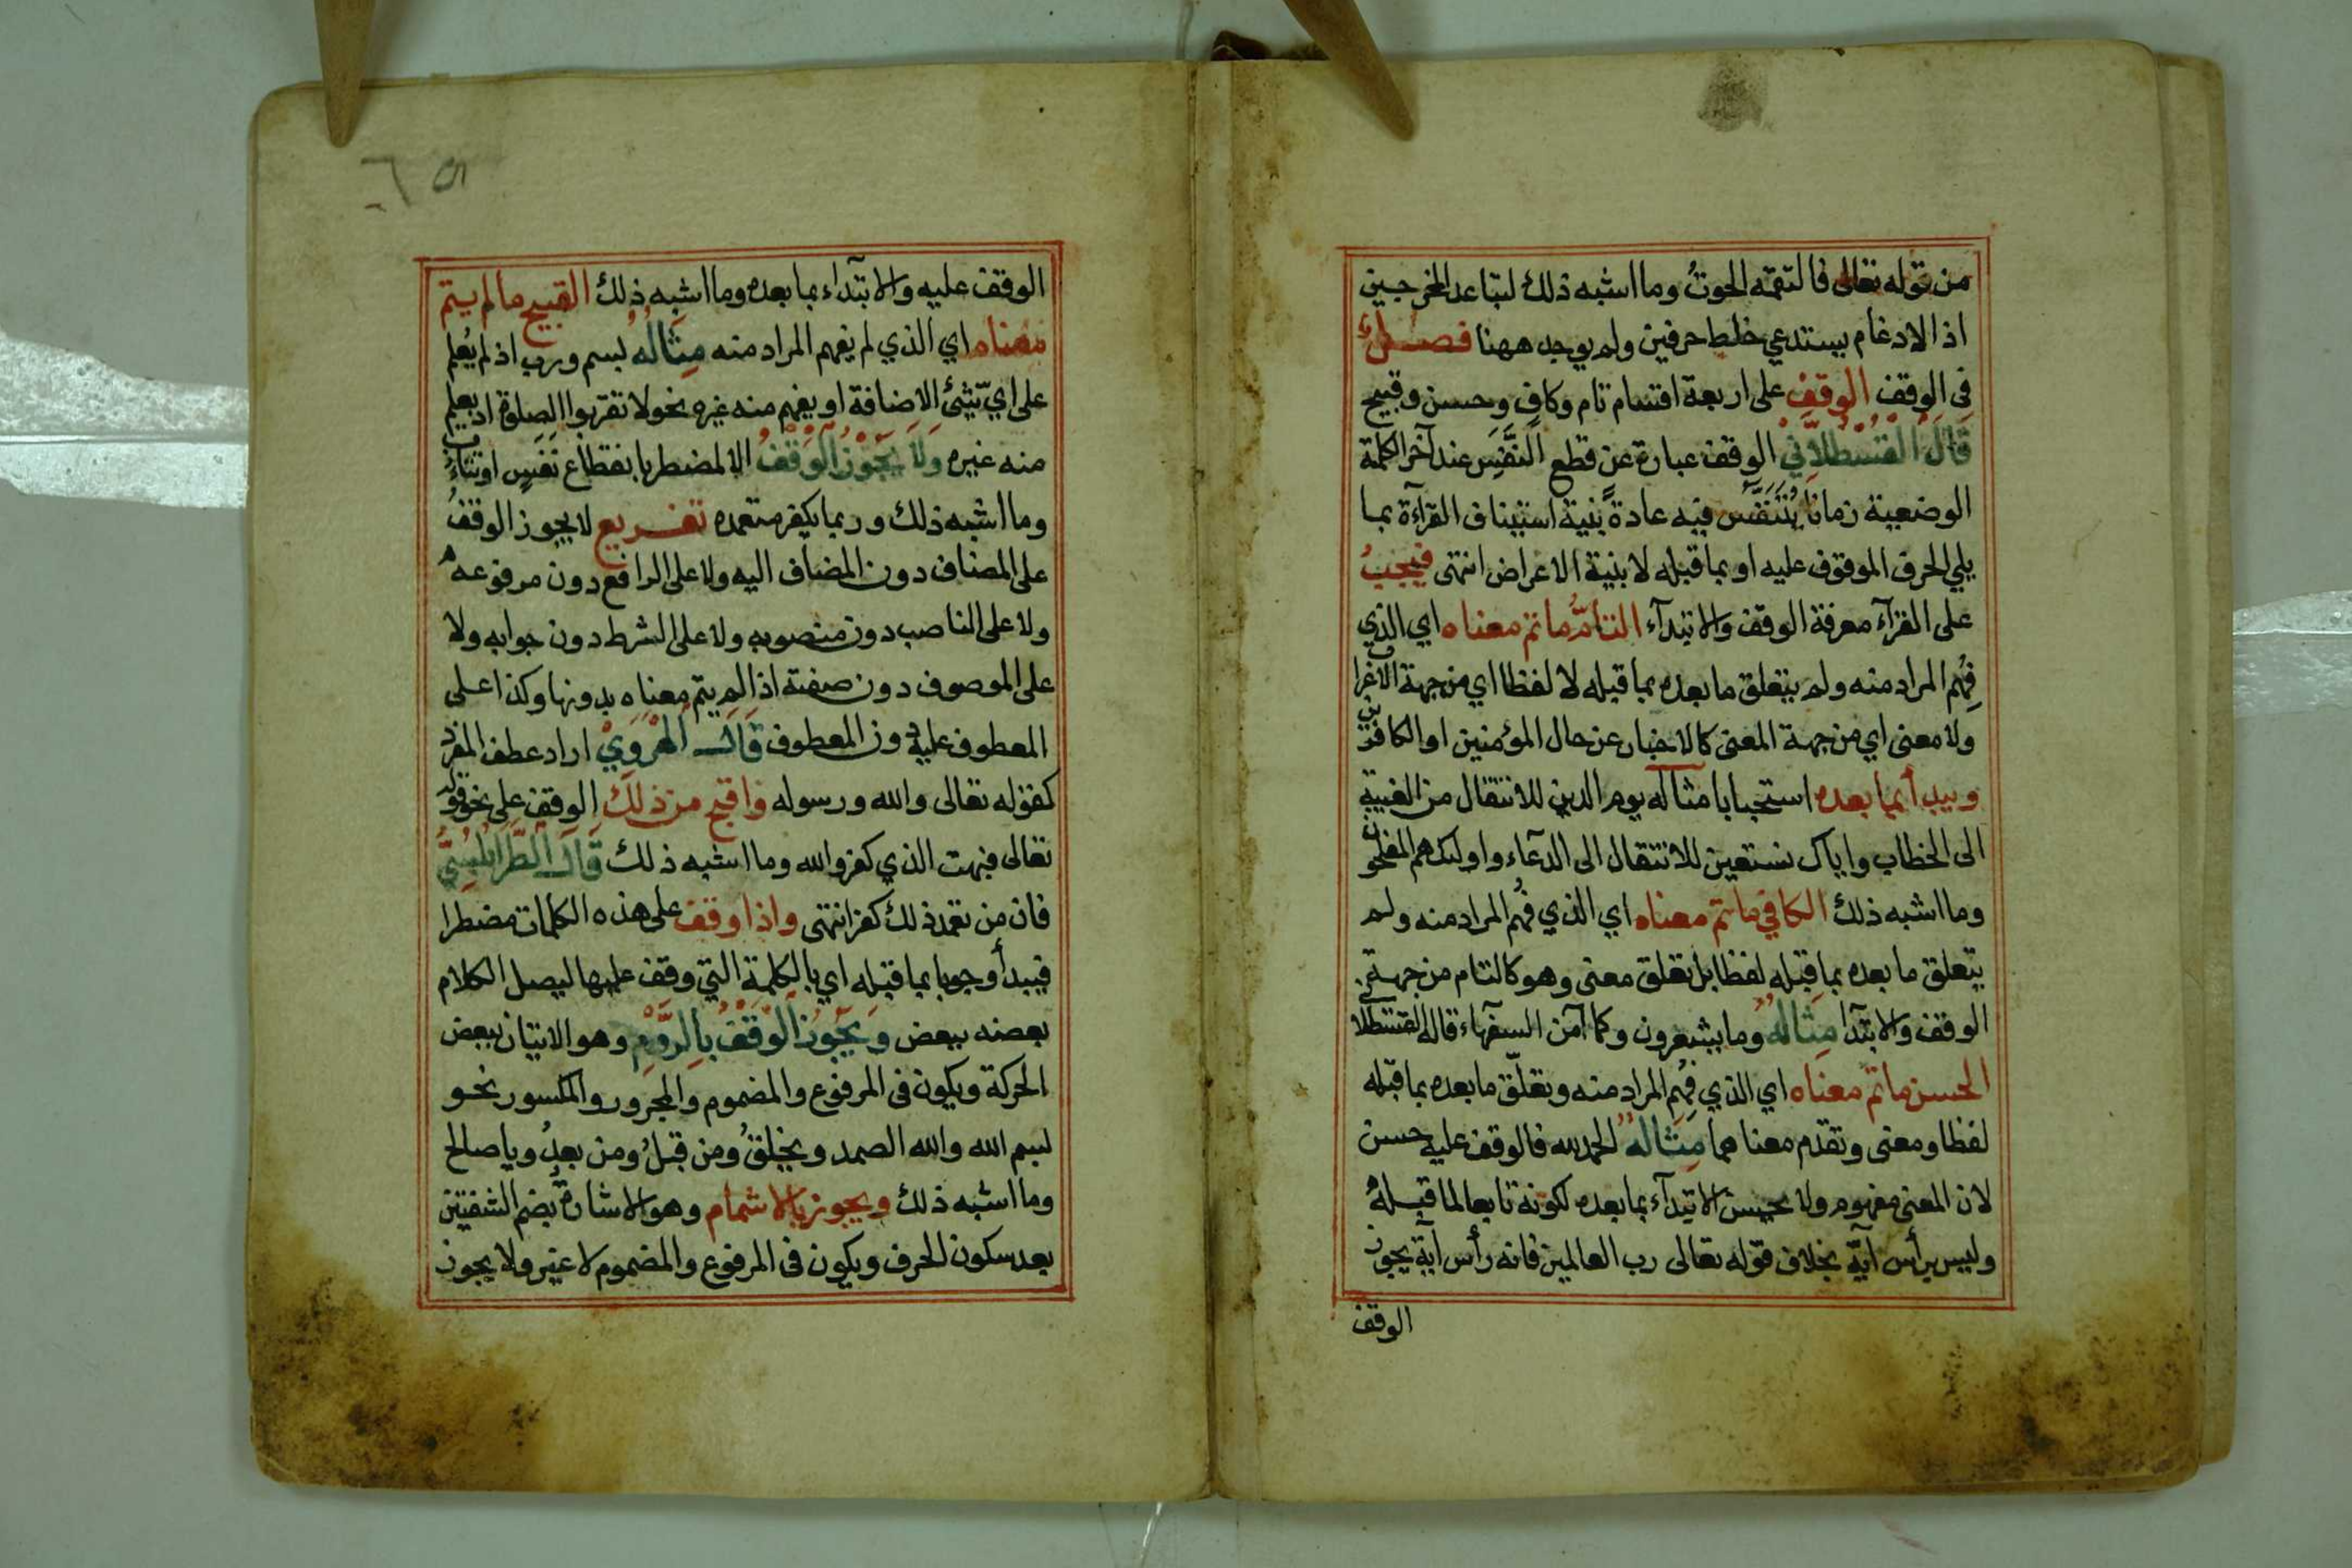 من قوله تعالى فالتقمه الحوتُ وما اشبه ذلك لتباعد المخرجين
اذ الادغام يستدعي خلط حرفين ولم يوجد ههنا فصل
فى الوقف الوقف على اربعة اقسام تام وكافٍ وحسن وقبيح
قَالَ الْقَسْطَلَّانِيْ الوقف عبارة عن قطع النَّفَس عند آخر الكلمة
الوضعية زمانا يُتَنَفَّس فيه عادة بنية استيناف القرآءة بما
يلي الحرف الموقوف عليه او بما قبله لا بنية الاعراض انتهى فيجبُ
على القرآء معرفة الوقف والابتدآء التامُّ ما تم معناه اي الذي
فُهِم المراد منه ولم يتعلق ما بعده بما قبله لا لفظا اي من جهة الاعراب
ولا معنى اي من جهة المعنى كالاخبار عن حال المؤمنين او الكافرين
ويبدأ بما بعده استحبابا مثاله يوم الدين للانتقال من الغيبة
الى الخطاب واياك نستعين للانتقال الى الدعآء واولئك هم المفلحون
وما اشبه ذلك الكافي ما تم معناه اي الذي فُهم المراد منه ولم
يتعلق ما بعده بما قبله لفظا بل تعلق معنى وهو كالتام من جهة
الوقف والابتدآ مِثَالُهُ وما يشعرون وكما آمن السفهآء قاله القسطلاني
الحسن ما تم معناه اي الذي فُهِم المراد منه وتعلّق ما بعده بما قبله
لفظا ومعنى وتقدم معناهما مِثَالُهُ الحمد لله فالوقف عليه حسن
لان المعنى مفهوم ولا يحسن الابتدآء بما بعده لكونه تابعا لما قبله
وليس برأس آية بخلاف قوله تعالى رب العالمين فانه رأس آية يجوز
الوقف
٥٦
الوقف عليه والابتدآء بما بعده وما اشبه ذلك القبيح ما لم يتم
معناه اي الذي لم يفهم المراد منه مِثَالُهُ بسم ورب اذ لم يُعلم
على ايّ شئ الاضافة او يفهم منه غيره نحو لا تقربوا الصلوة اذ يعلم
منه غيره وَلَا يَجُوْزُ الْوَقْفُ الا لمضطر بانقطاع نَفَسٍ او تثاءب
وما اشبه ذلك وربما يكفر متعمده تفريع لا يجوز الوقف
على المضاف دون المضاف اليه ولا على الرافع دون مرفوعه
ولا على الناصب دون منصوبه ولا على الشرط دون جوابه ولا
على الموصوف دون صفته اذا لم يتم معناه بدونها وكذا على
المعطوف عليه دون المعطوف قَالَ الْهَرَوِيْ اراد عطف المفرد
كقوله تعالى والله ورسوله واقبح من ذلك الوقف على نحو قوله
تعالى فبهت الذي كفر والله وما اشبه ذلك قَالَ الطَّرَابُلُسِيُّ
فان من تعمد ذلك كفر انتهى واذا وقف على هذه الكلمات مضطرا
فيبدأ وجوبا بما قبله اي بالكلمة التي وقف عليها ليصل الكلام
بعضه ببعض وَيَجُوْزُ الْوَقْفُ بِالرَّوْمِ وهو الاتيان ببعض
الحركة ويكون فى المرفوع والمضموم والمجرور والمكسور نحو
لبسم الله والله الصمد ويخلقُ ومن قبلُ ومن بعدُ ويا صالح
وما اشبه ذلك ويجوز بالاشمام وهو الاشارة بضم الشفتين
بعد سكون الحرف ويكون فى المرفوع والمضموم لا غير ولا يجوز